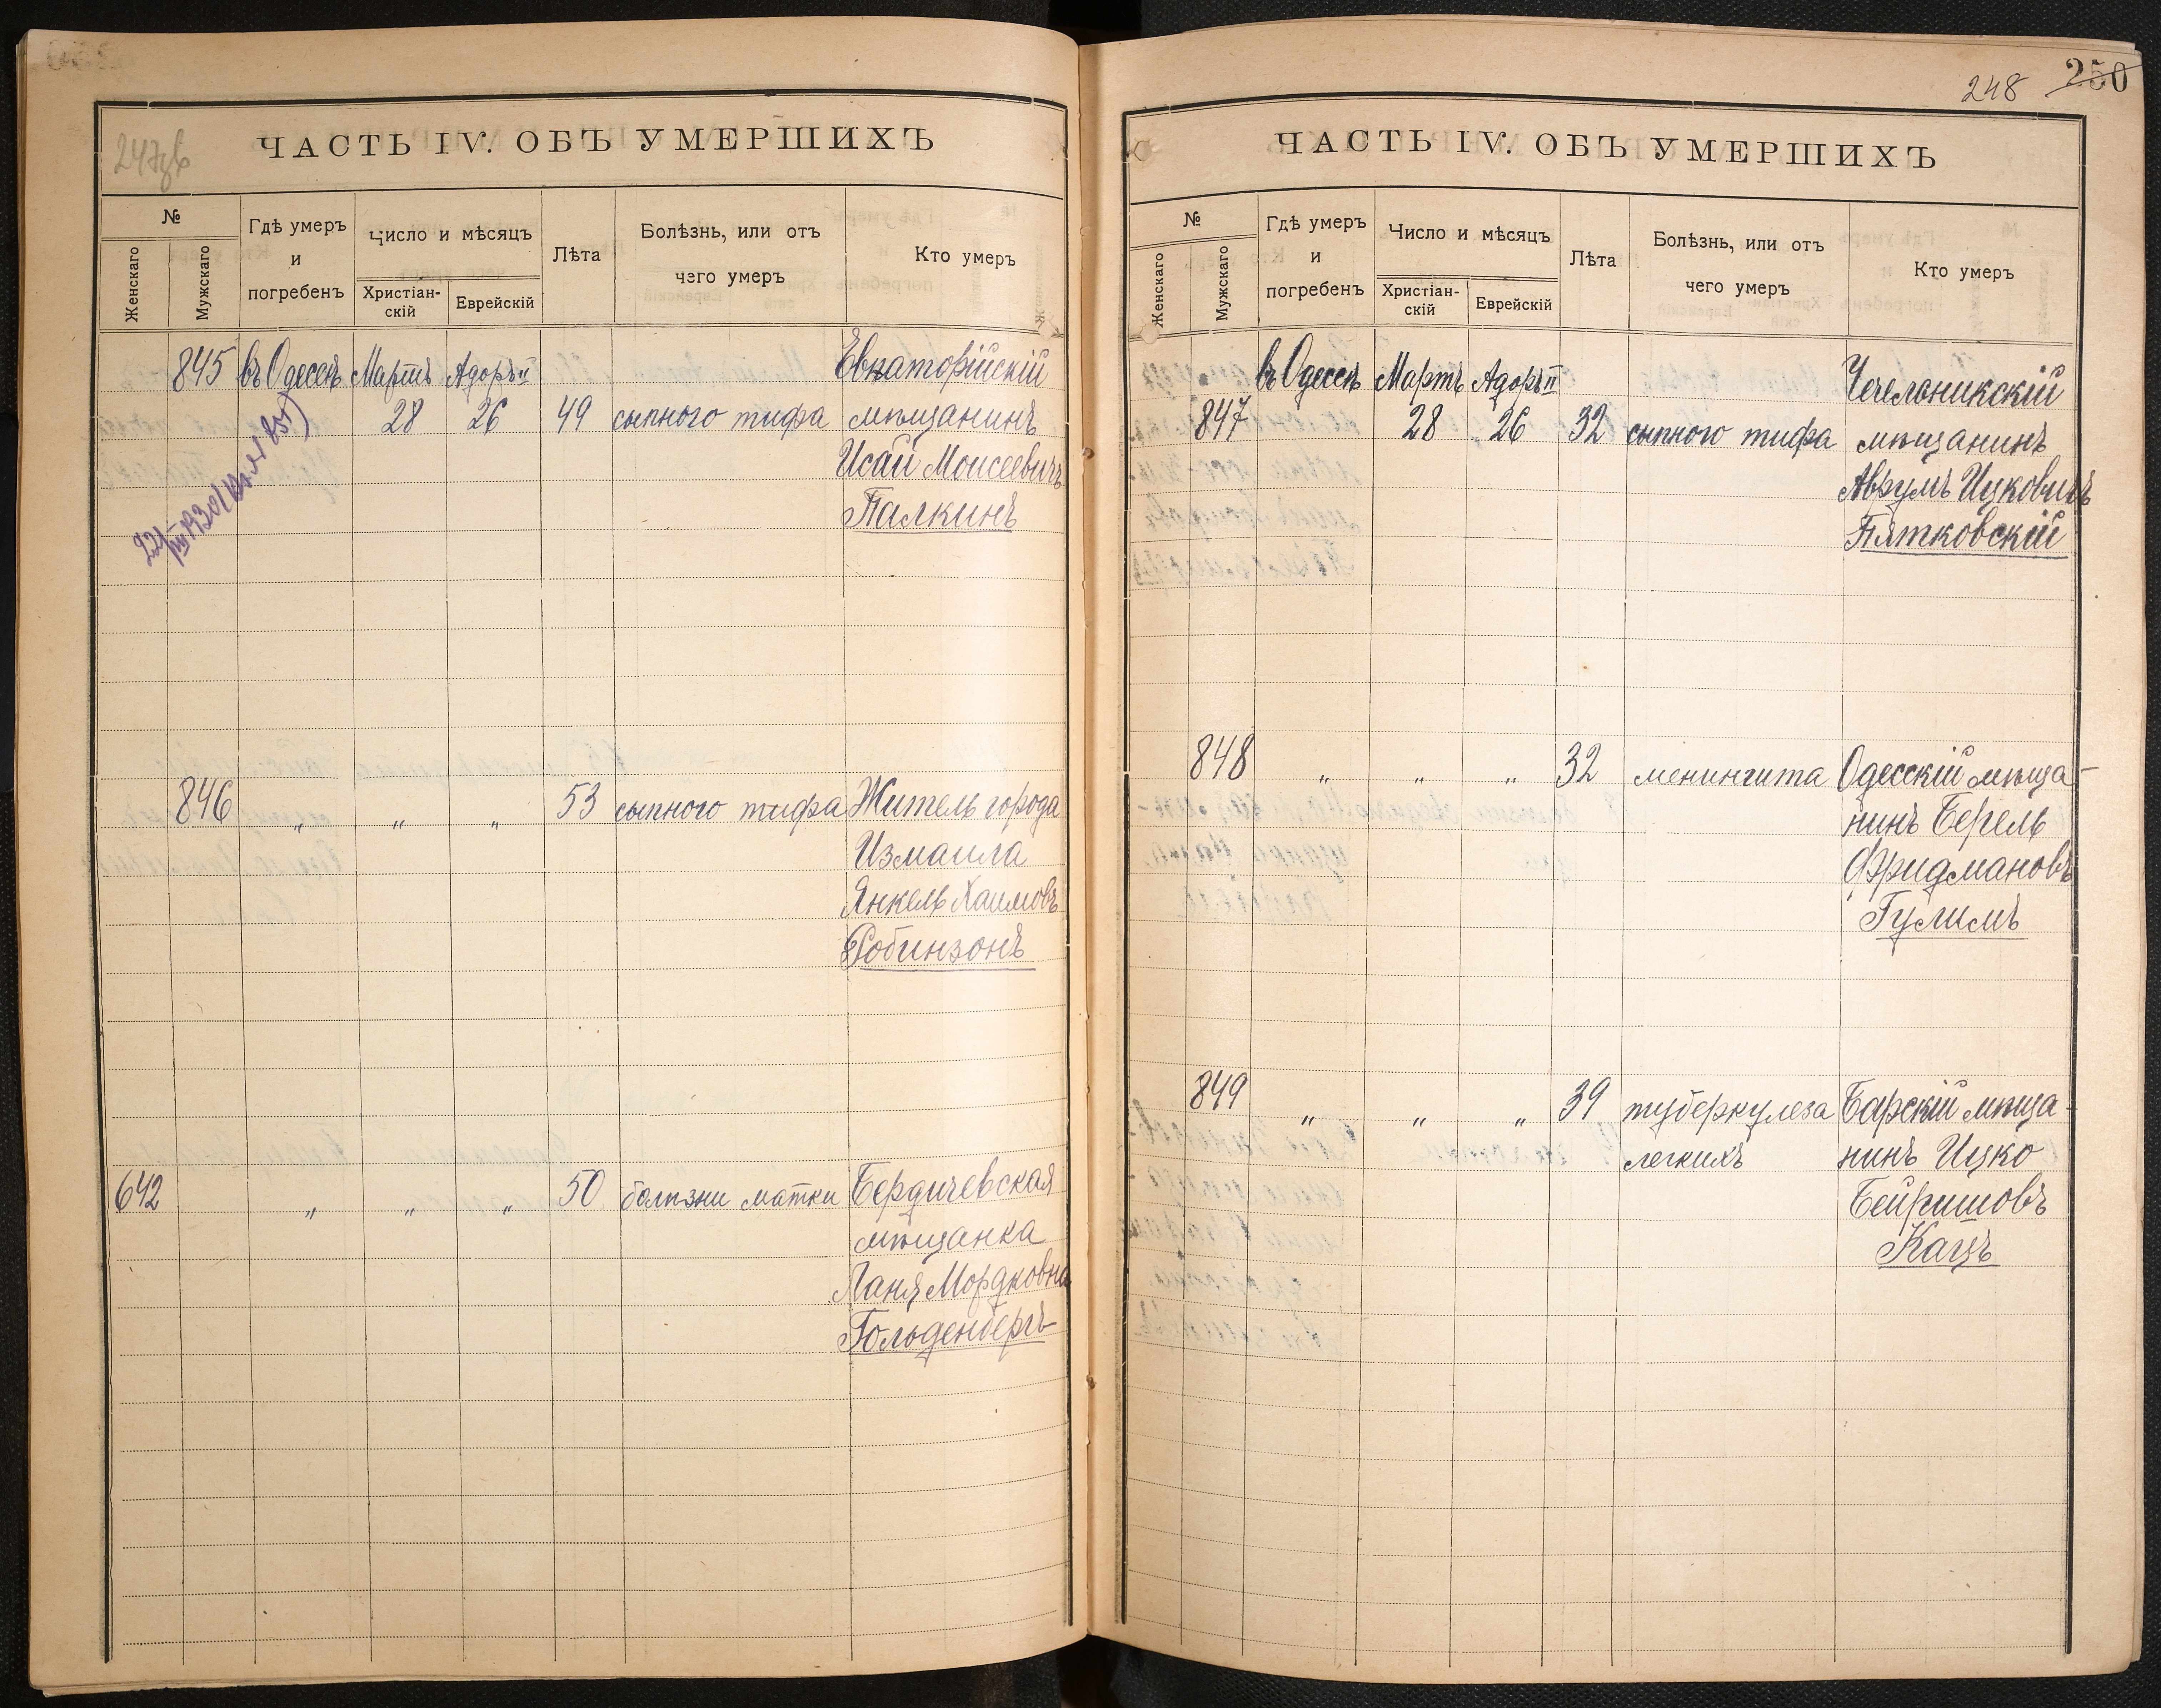 ЧАСТЬ IV. ОБЪ УМЕРШИХЪ
№
Женскаго
Мужскаго
Гдѣ умеръ
и
погребенъ
Число и мѣсяцъ
Христіан-
скій
Еврейскій
Лѣта
Болѣзнь, или отъ
чего умеръ
Кто умеръ
845 въ Одессѣ Мартъ Адоръ II Евпаторійскій
28 26 49 сыпного тифа мѣщанинъ
Исай Моисеевичъ
Палкинъ
846 „ „ „ 53 сыпного тифа Житель города
Измаила
Янкель Хаимовъ
Робинзонъ
642 „ „ „ 50 болѣзни матки Бердичевская
мѣщанка
Ханя Мордковна
Гольденбергъ
248 250
ЧАСТЬ IV. ОБЪ УМЕРШИХЪ
№
Женскаго
Мужскаго
Гдѣ умеръ
и
погребенъ
Число и мѣсяцъ
Христіан-
скій
Еврейскій
Лѣта
Болѣзнь, или отъ
чего умеръ
Кто умеръ
въ Одессѣ Мартъ Адоръ II Чечельникскій
847 28 26 32 сыпного тифа мѣщанинъ
Аврумъ Ицковичъ
Пятковскій
848 „ „ „ 32 менингита Одесскій мѣща-
нинъ Берель
Фридмановъ
Гулимъ
849 „ „ „ 39 туберкулеза Барскій мѣща-
легкихъ нинъ Ицко
Бейришовъ
Кацъ